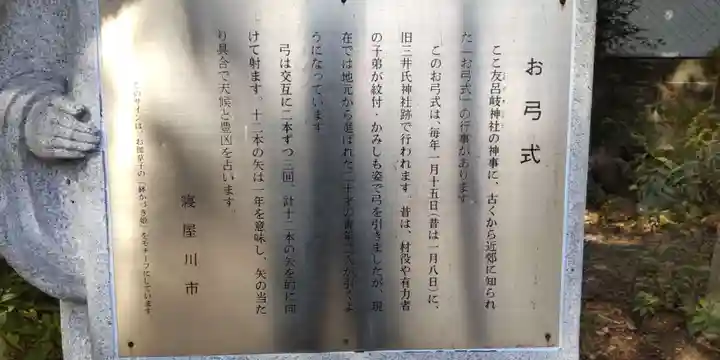 お弓式
ここ友呂岐神社の神事に、古くから近郊に知られ
た「お弓式」の行事があります。
このお弓式は、毎年一月十五日(昔は一月八日)に、
旧三井氏神社跡で行われます。昔は、村役や有力者
の子弟が紋付・かみしも姿で弓を引きましたが、現
在では地元から選ばれた二十才の青年二人が引くよ
うになっています。
弓は交互に二本ずつ三回、計十二本の矢を的に向
けて射ます。十二本の矢は一年を意味し、矢の当た
り具合で天候と豊凶を占います。
寝屋川市
このサインは、お伽草子の「鉢かづき姫」をモチーフにしています